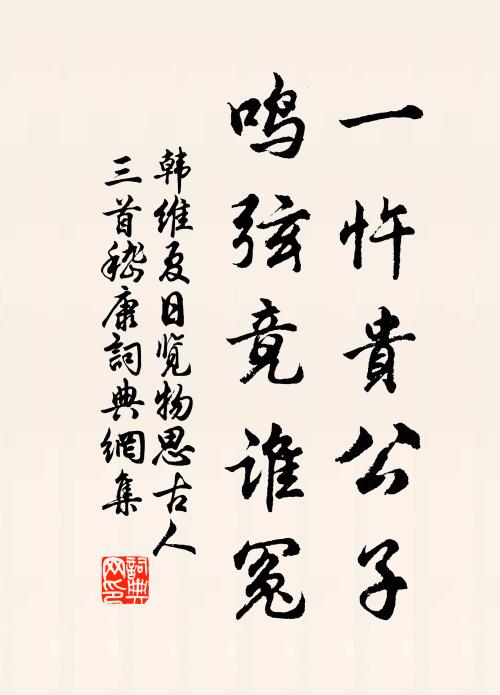 一忤貴公子
鸣弦竟谁冤
韩维夏日览物思古人
三首嵇康詞典網集
詞典网印